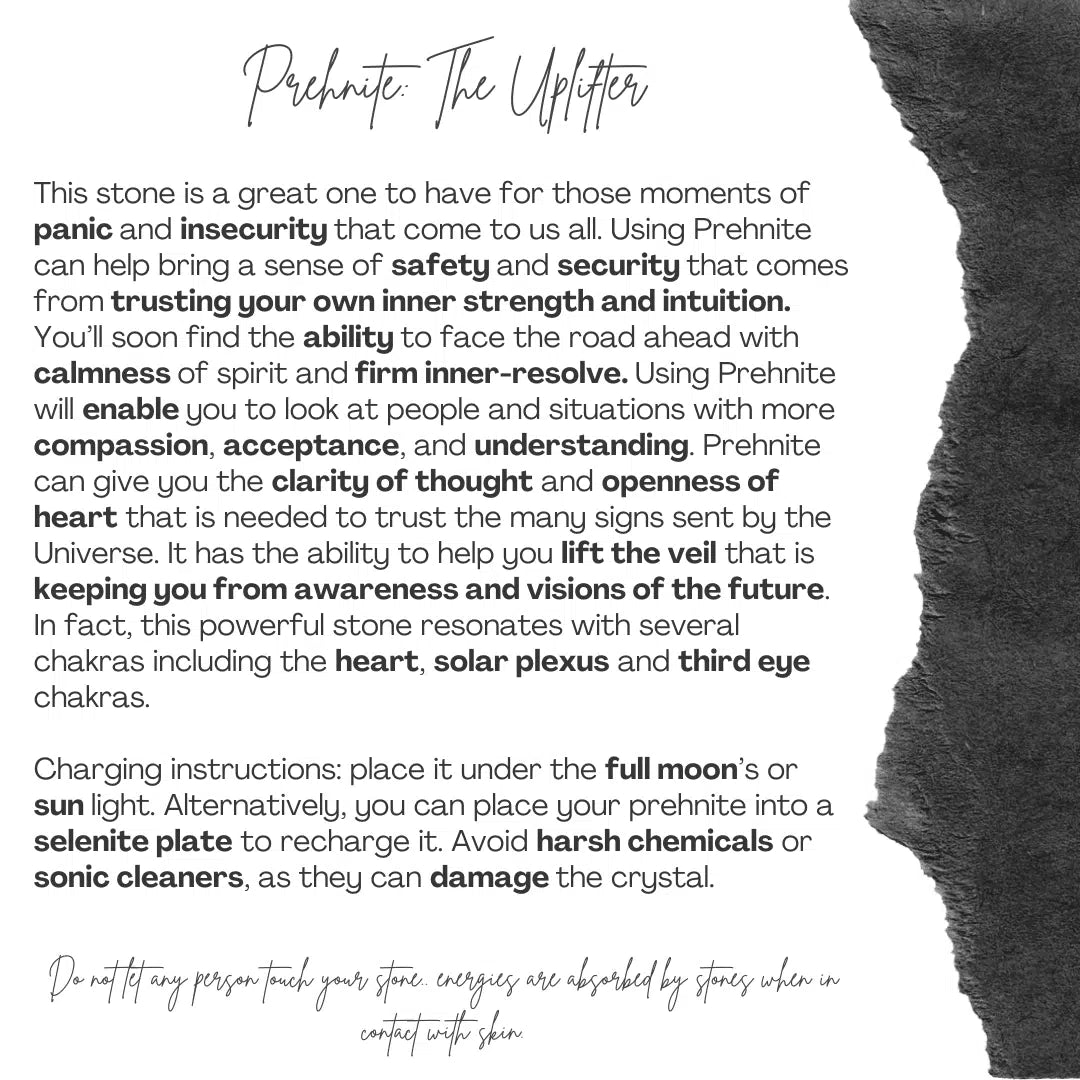 Prehnite: The Uplifter
This stone is a great one to have for those moments of
panic and insecurity that come to us all. Using Prehnite
can help bring a sense of safety and security that comes
from trusting your own inner strength and intuition.
You’ll soon find the ability to face the road ahead with
calmness of spirit and firm inner-resolve. Using Prehnite
will enable you to look at people and situations with more
compassion, acceptance, and understanding. Prehnite
can give you the clarity of thought and openness of
heart that is needed to trust the many signs sent by the
Universe. It has the ability to help you lift the veil that is
keeping you from awareness and visions of the future.
In fact, this powerful stone resonates with several
chakras including the heart, solar plexus and third eye
chakras.
Charging instructions: place it under the full moon’s or
sun light. Alternatively, you can place your prehnite into a
selenite plate to recharge it. Avoid harsh chemicals or
sonic cleaners, as they can damage the crystal.
Do not let any person touch your stone.. energies are absorbed by stones when in
contact with skin.